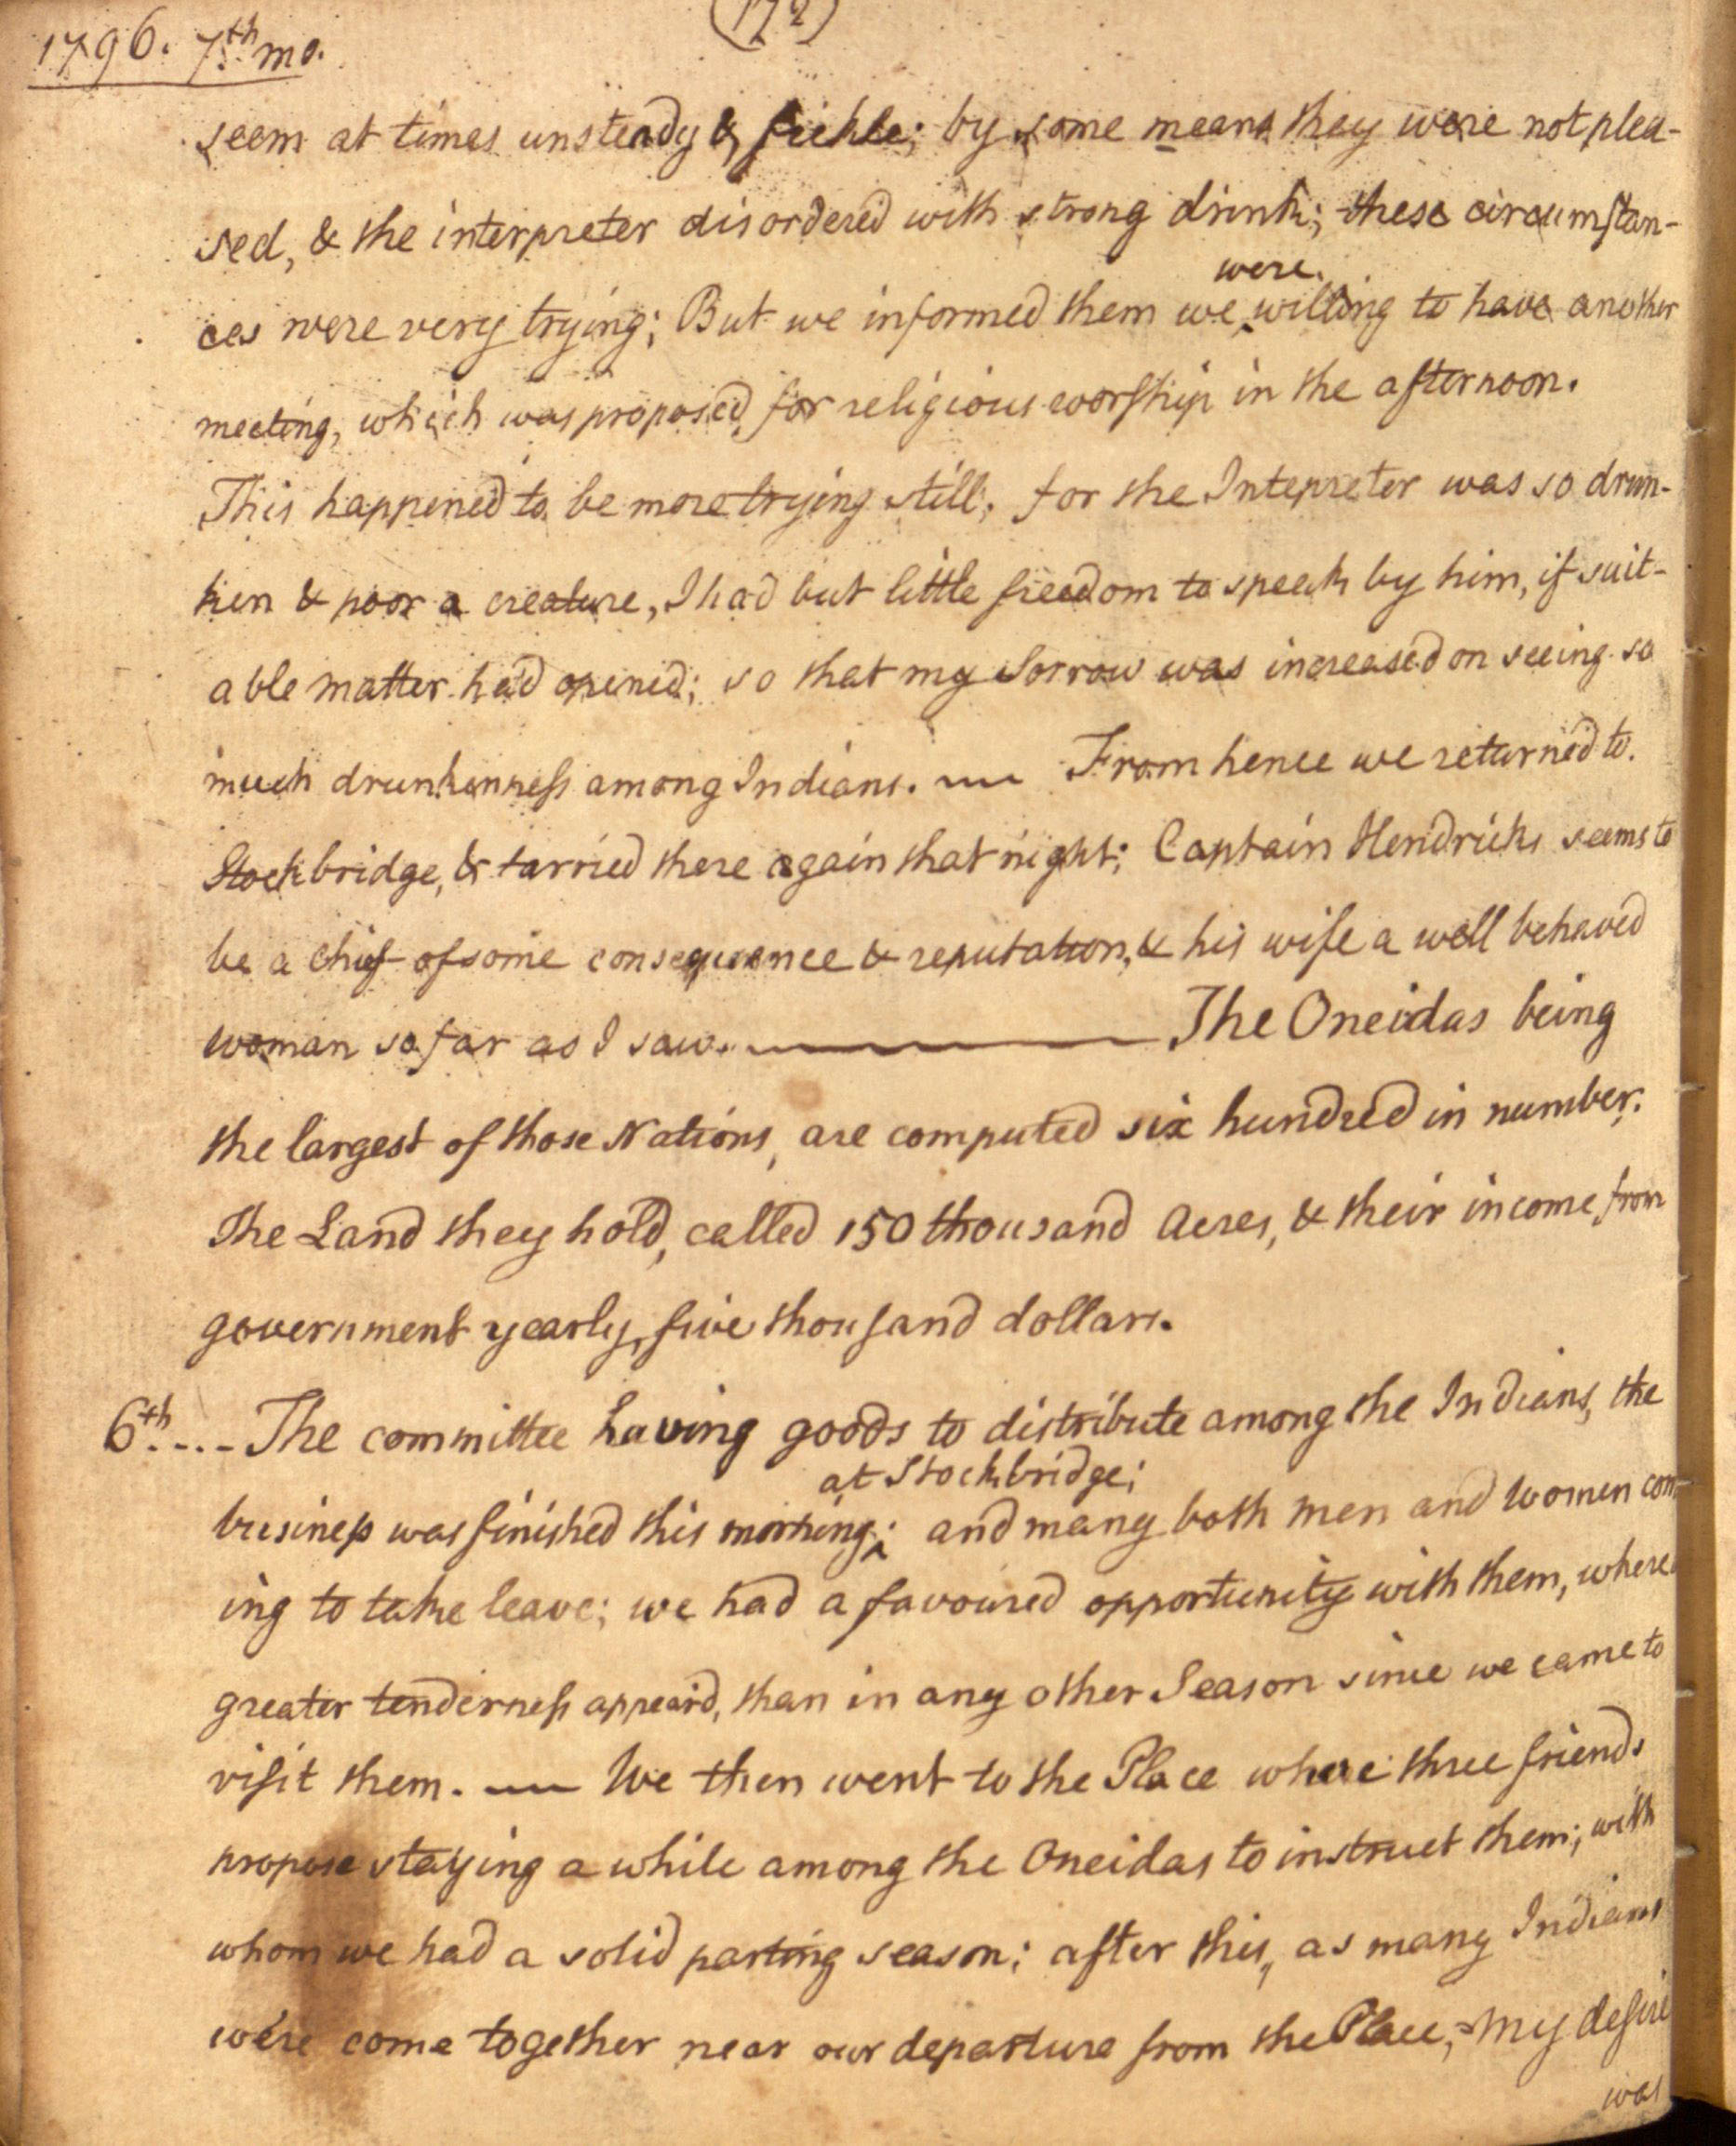 (172)
1796. 7th mo.
seem at times unsteady & fickle; by some means they were not plea-
sed, & the interpreter disordered with strong drink; these circumstan-
were
ces were very trying; But we informed them we ^ willing to have another
meeting, which was proposed for religious worship in the afternoon.
This happened to be more trying still, for the Intepreter was so drun-
ken & poor a creature, I had but little freedom to speak by him, if suit-
able matter had opened; so that my Sorrow was increased on seeing so
much drunkenness among Indians. — From hence we returned to
Stockbridge, & tarried there again that night; Captain Hendricks seems to
be a chief of some consequence & reputation, & his wife a well behaved
woman so far as I saw. — The Oneidas being
the largest of those Nations, are computed six hundred in number.
The Land they hold, called 150 thousand Acres, & their income from
government yearly, five thousand dollars.
6th.... The committee having goods to distribute among the Indians, the
at Stockbridge;
business was finished this morning; ^ and many both men and women com-
ing to take leave; we had a favoured opportunity with them, where
greater tenderness appear'd, than in any other Season since we came to
visit them. — We then went to the Place where three friends
propose staying a while among the Oneidas to instruct them; with
whom we had a solid parting season; after this, as many Indians
were come together near our departure from the Place, my desire
was